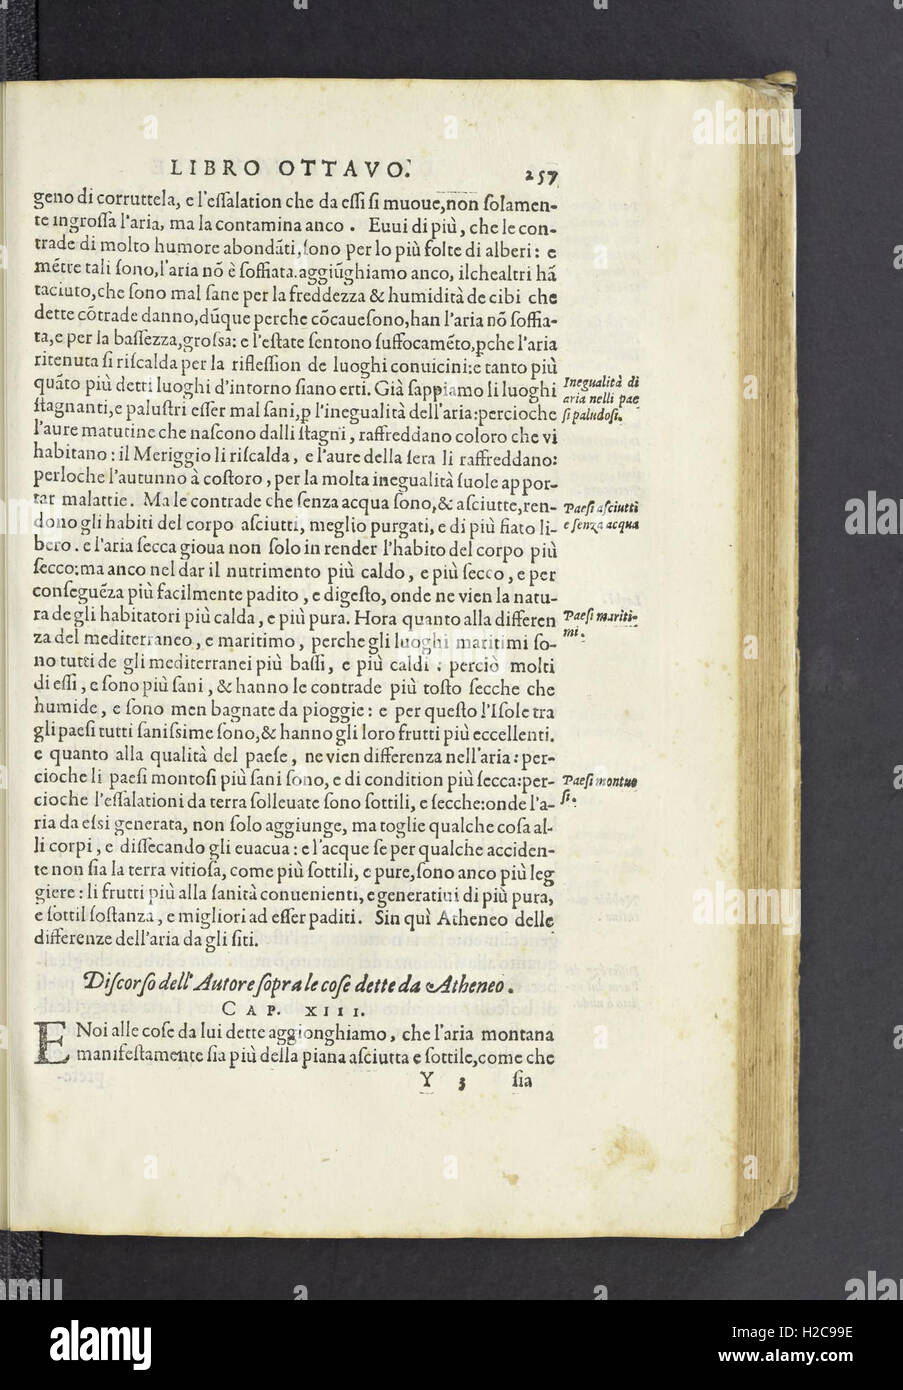 LIBRO OTTAVO. 257
geno di corruttela, e l'eſſalation che da eſſi ſi muoue,non ſolamen-
te ingroſſa l'aria, ma la contamina anco . Euui di più, che le con-
trade di molto humore abondāti,ſono per lo più folte di alberi: e
mētre tali ſono,l'aria nō è ſoffiata.aggiūghiamo anco, ilchealtri hā
taciuto,che ſono mal ſane per la freddezza & humidità de cibi che
dette cōtrade danno,dūque perche cōcaueſono,han l'aria nō ſoffia-
ta,e per la baſſezza,groſsa: e l'eſtate ſentono ſuffocamēto,ꝑche l'aria
ritenuta ſi riſcalda per la rifleſſion de luoghi conuicini:e tanto più
quāto più detti luoghi d'intorno ſiano erti. Già ſappiamo li luoghi
ſtagnanti,e paluſtri eſſer mal ſani,ꝑ l'inegualità dell'aria:percioche
l'aure matutine che naſcono dalli ſtagni , raffreddano coloro che vi
habitano : il Meriggio li riſcalda , e l'aure della ſera li raffreddano:
perloche l'autunno à coſtoro , per la molta inegualità ſuole appor-
tar malattie . Ma le contrade che ſenza acqua ſono,& aſciutte,ren-
dono gli habiti del corpo aſciutti, meglio purgati, e di più fiato li-
bero . e l'aria ſecca gioua non ſolo in render l'habito del corpo più
ſecco;ma anco nel dar il nutrimento più caldo , e più ſecco , e per
conſeguēza più facilmente padito , e digeſto, onde ne vien la natu-
ra de gli habitatori più calda, e più pura. Hora quanto alla differen
za del mediterraneo , e maritimo , perche gli luoghi maritimi ſo-
no tutti de gli mediterranei più baſſi, e più caldi : perciò molti
di eſſi , e ſono più ſani , & hanno le contrade più toſto ſecche che
humide, e ſono men bagnate da pioggie : e per queſto l'Iſole tra
gli paeſi tutti ſaniſsime ſono,& hanno gli loro frutti più eccellenti.
e quanto alla qualità del paeſe, ne vien differenza nell'aria : per-
cioche li paeſi montoſi più ſani ſono, e di condition più ſecca:per-
cioche l'eſſalationi da terra ſolleuate ſono ſottili, e ſecche:onde l'a-
ria da eſsi generata, non ſolo aggiunge, ma toglie qualche coſa al-
li corpi , e diſſecando gli euacua : e l'acque ſe per qualche acciden-
te non ſia la terra vitioſa, come più ſottili, e pure,ſono anco più leg
giere : li frutti più alla ſanità conuenienti, e generatiui di più pura,
e ſottil ſoſtanza , e migliori ad eſſer paditi. Sin quì Atheneo delle
differenze dell'aria da gli ſiti.
Inegualità di
aria nelli pae
ſi paludoſi.
Paeſi aſciutti
e ſenza acqua
Paeſi mariti-
mi.
Paeſi montuo
ſi.
Diſcorſo dell'Autore ſopra le coſe dette da Atheneo.
CAP. XIII.
E Noi alle coſe da lui dette aggionghiamo, che l'aria montana
manifeſtamente ſia più della piana aſciutta e ſottile,come che
Y 3 ſia
alamy
H2C99E
www.alamy.com